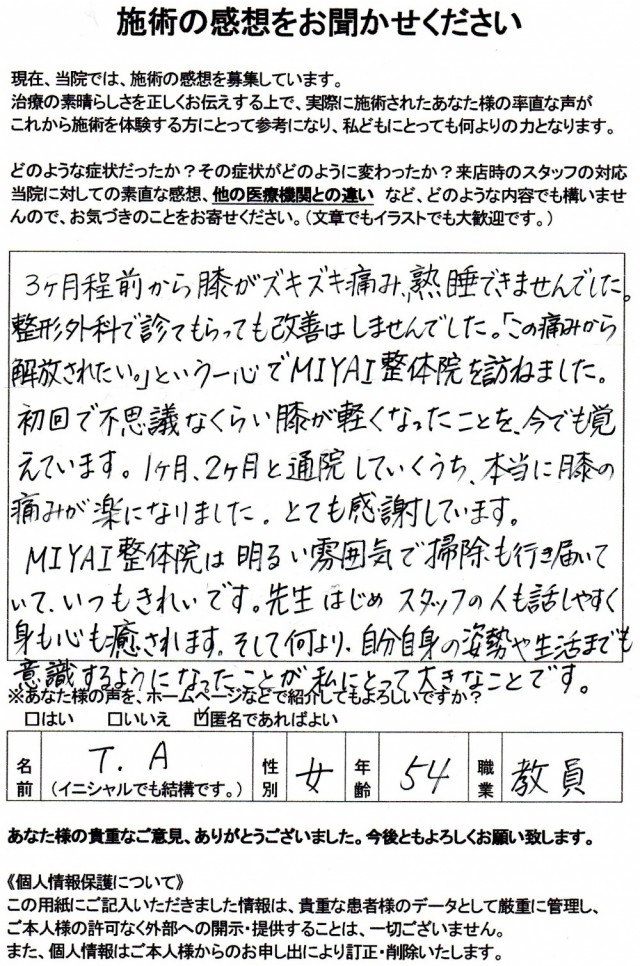 施術の感想をお聞かせください
現在、当院では、施術の感想を募集しています。
治療の素晴らしさを正しくお伝えする上で、実際に施術されたあなた様の率直な声が
これから施術を体験する方にとって参考になり、私どもにとっても何よりの力となります。
どのような症状だったか？その症状がどのように変わったか？来店時のスタッフの対応
当院に対しての素直な感想、他の医療機関との違い など、どのような内容でも構いませ
んので、お気づきのことをお寄せください。（文章でもイラストでも大歓迎です。）
3ヶ月程前から膝がズキズキ痛み、熟睡できませんでした。
整形外科で診てもらっても改善はしませんでした。「この痛みから
解放されたい。」という一心でMIYAI整体院を訪ねました。
初回で不思議なくらい膝が軽くなったことを、今でも覚
えています。1ヶ月、2ヶ月と通院していくうち、本当に膝の
痛みが楽になりました。とても感謝しています。
MIYAI整体院は明るい雰囲気で掃除も行き届いて
いて、いつもきれいです。先生はじめスタッフの人も話しやすく
身も心も癒されます。そして何より、自分自身の姿勢や生活までも
意識するようになったことが私にとって大きなことです。
※あなた様の声を、ホームページなどで紹介してもよろしいですか？
□はい □いいえ ☑匿名であればよい
名前 T. A （イニシャルでも結構です。） 性別 女 年齢 54 職業 教員
あなた様の貴重なご意見、ありがとうございました。今後ともよろしくお願い致します。
《個人情報保護について》
この用紙にご記入いただきました情報は、貴重な患者様のデータとして厳重に管理し、
ご本人様の許可なく外部への開示・提供することは、一切ございません。
また、個人情報はご本人様からのお申し出により訂正・削除いたします。